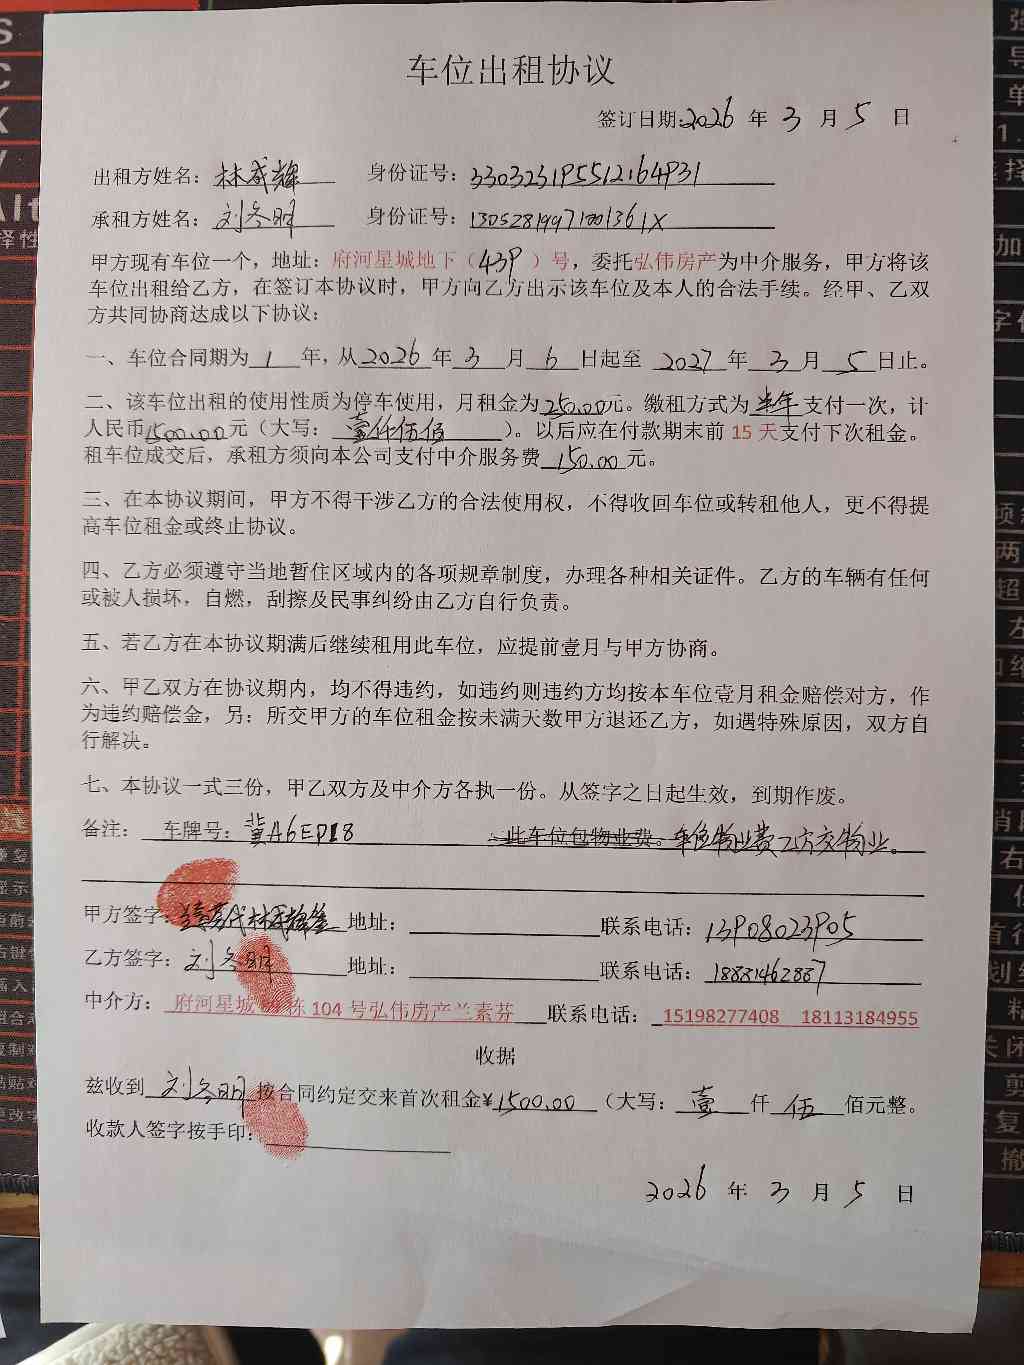 车位出租协议
签订日期:2026 年 3 月 5 日
出租方姓名：林成辉 身份证号：330323195512164931
承租方姓名：刘冬明 身份证号：13052819971001361X
甲方现有车位一个，地址：府河星城地下（439）号，委托弘伟房产为中介服务，甲方将该
车位出租给乙方，在签订本协议时，甲方向乙方出示该车位及本人的合法手续。经甲、乙双
方共同协商达成以下协议：
一、车位合同期为 1 年，从 2026 年 3 月 6 日起至 2027 年 3 月 5 日止。
二、该车位出租的使用性质为停车使用，月租金为 250.00元。缴租方式为 半年 支付一次，计
人民币1500.00元（大写： 壹仟伍佰 ）。以后应在付款期末前 15 天支付下次租金。
租车位成交后，承租方须向本公司支付中介服务费 150.00 元。
三、在本协议期间，甲方不得干涉乙方的合法使用权，不得收回车位或转租他人，更不得提
高车位租金或终止协议。
四、乙方必须遵守当地暂住区域内的各项规章制度，办理各种相关证件。乙方的车辆有任何
或被人损坏，自燃，刮擦及民事纠纷由乙方自行负责。
五、若乙方在本协议期满后继续租用此车位，应提前壹月与甲方协商。
六、甲乙双方在协议期内，均不得违约，如违约则违约方均按本车位壹月租金赔偿对方，作
为违约赔偿金，另：所交甲方的车位租金按未满天数甲方退还乙方，如遇特殊原因，双方自
行解决。
七、本协议一式三份，甲乙双方及中介方各执一份。从签字之日起生效，到期作废。
备注： 车牌号：冀A6EP18 此车位包物业费。车位物业费乙方交物业。
甲方签字： 代林成辉签 地址： 联系电话：13908023905
乙方签字：刘冬明 地址： 联系电话：18831462887
中介方： 府河星城 栋 104 号弘伟房产兰素芬 联系电话： 15198277408 18113184955
收据
兹收到 刘冬明 按合同约定交来首次租金¥1500.00 （大写： 壹 仟 伍 佰元整。
收款人签字按手印：
2026 年 3 月 5 日